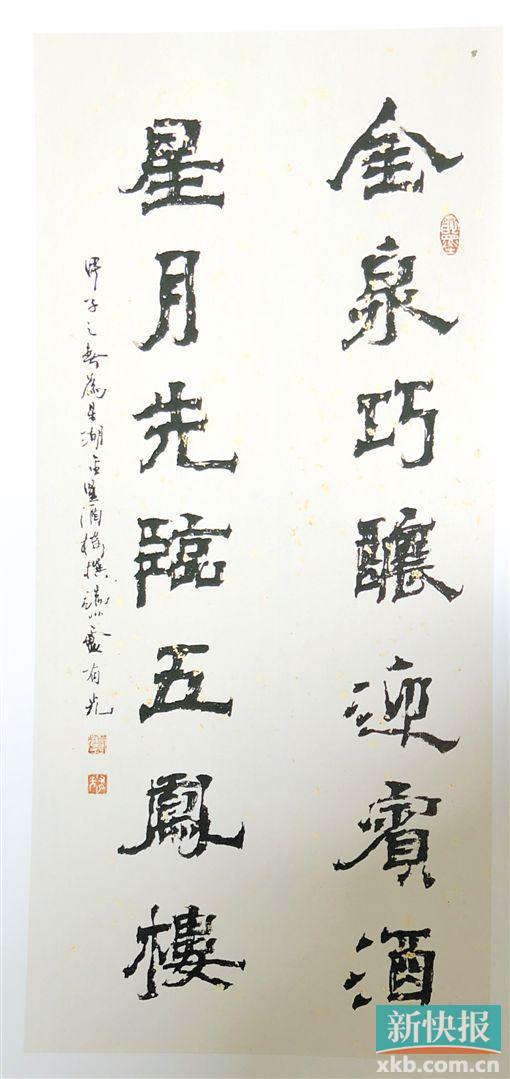 金泉巧釀迎賓酒
星月先臨五鳳樓
甲子之春為星湖金星酒樓撰端州盧有光
新快报
xkb.com.cn